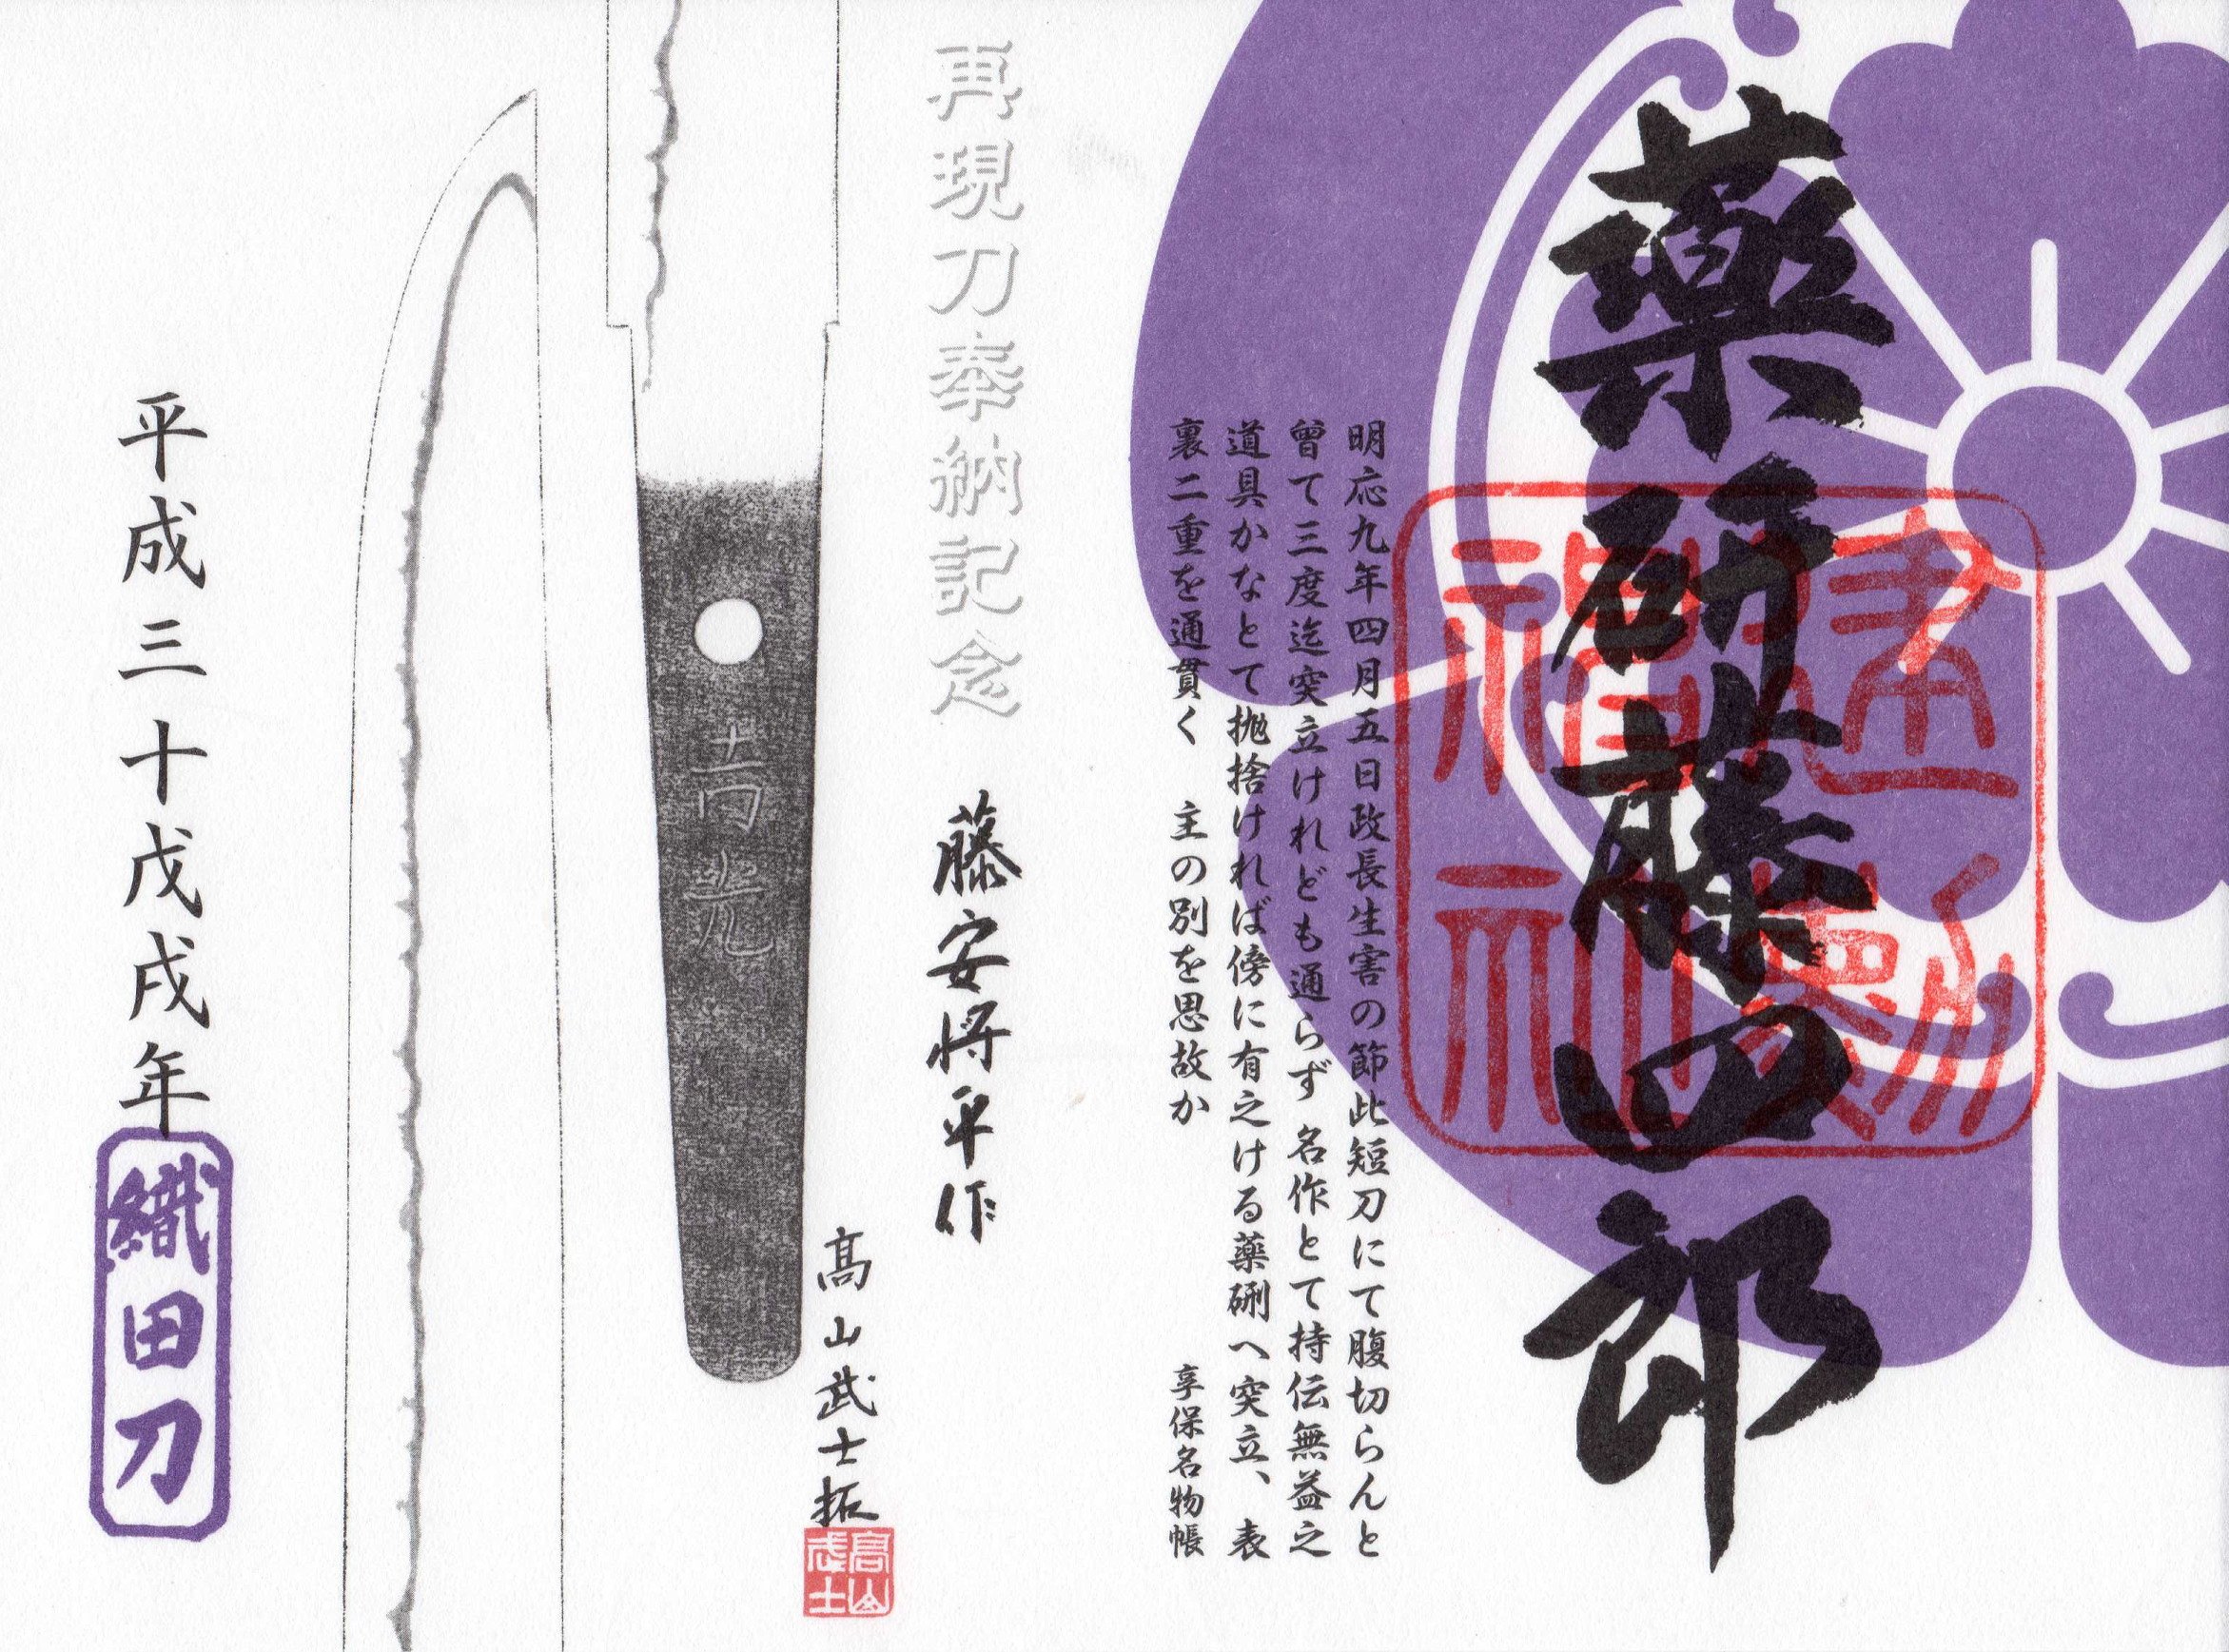 薬研藤四郎
建勲神社
明応九年四月五日政長生害の節此短刀にて腹切らんと
曾て三度迄突立けれども通らず 名作とて持伝無益之
道具かなとて抛捨けれは傍に有之ける薬研へ突立、表
裏二重を通貫く 主の別を思故か
享保名物帳
再現刀奉納記念
藤安将平作
髙山武士拓
髙山武士
吉光
平成三十戊戌年
織田刀